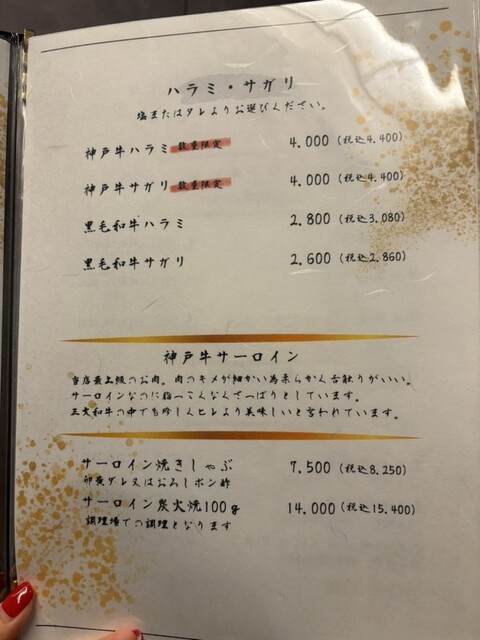 ハラミ・サガリ
塩またはタレよりお選びください。
神戸牛ハラミ 数量限定 4,000 (税込4,400)
神戸牛サガリ 数量限定 4,000 (税込4,400)
黒毛和牛ハラミ 2,800 (税込3,080)
黒毛和牛サガリ 2,600 (税込2,860)
神戸牛サーロイン
当店最上級のお肉。肉のキメが細かい為柔らかく舌触りがいい。
サーロインなのに脂っこくなくさっぱりとしています。
三大和牛の中でも珍しくヒレより美味しいと言われています。
サーロイン焼きしゃぶ 7,500 (税込8,250)
卵黄ダレ又はおろしポン酢
サーロイン炭火焼100g 14,000 (税込15,400)
調理場での調理となります